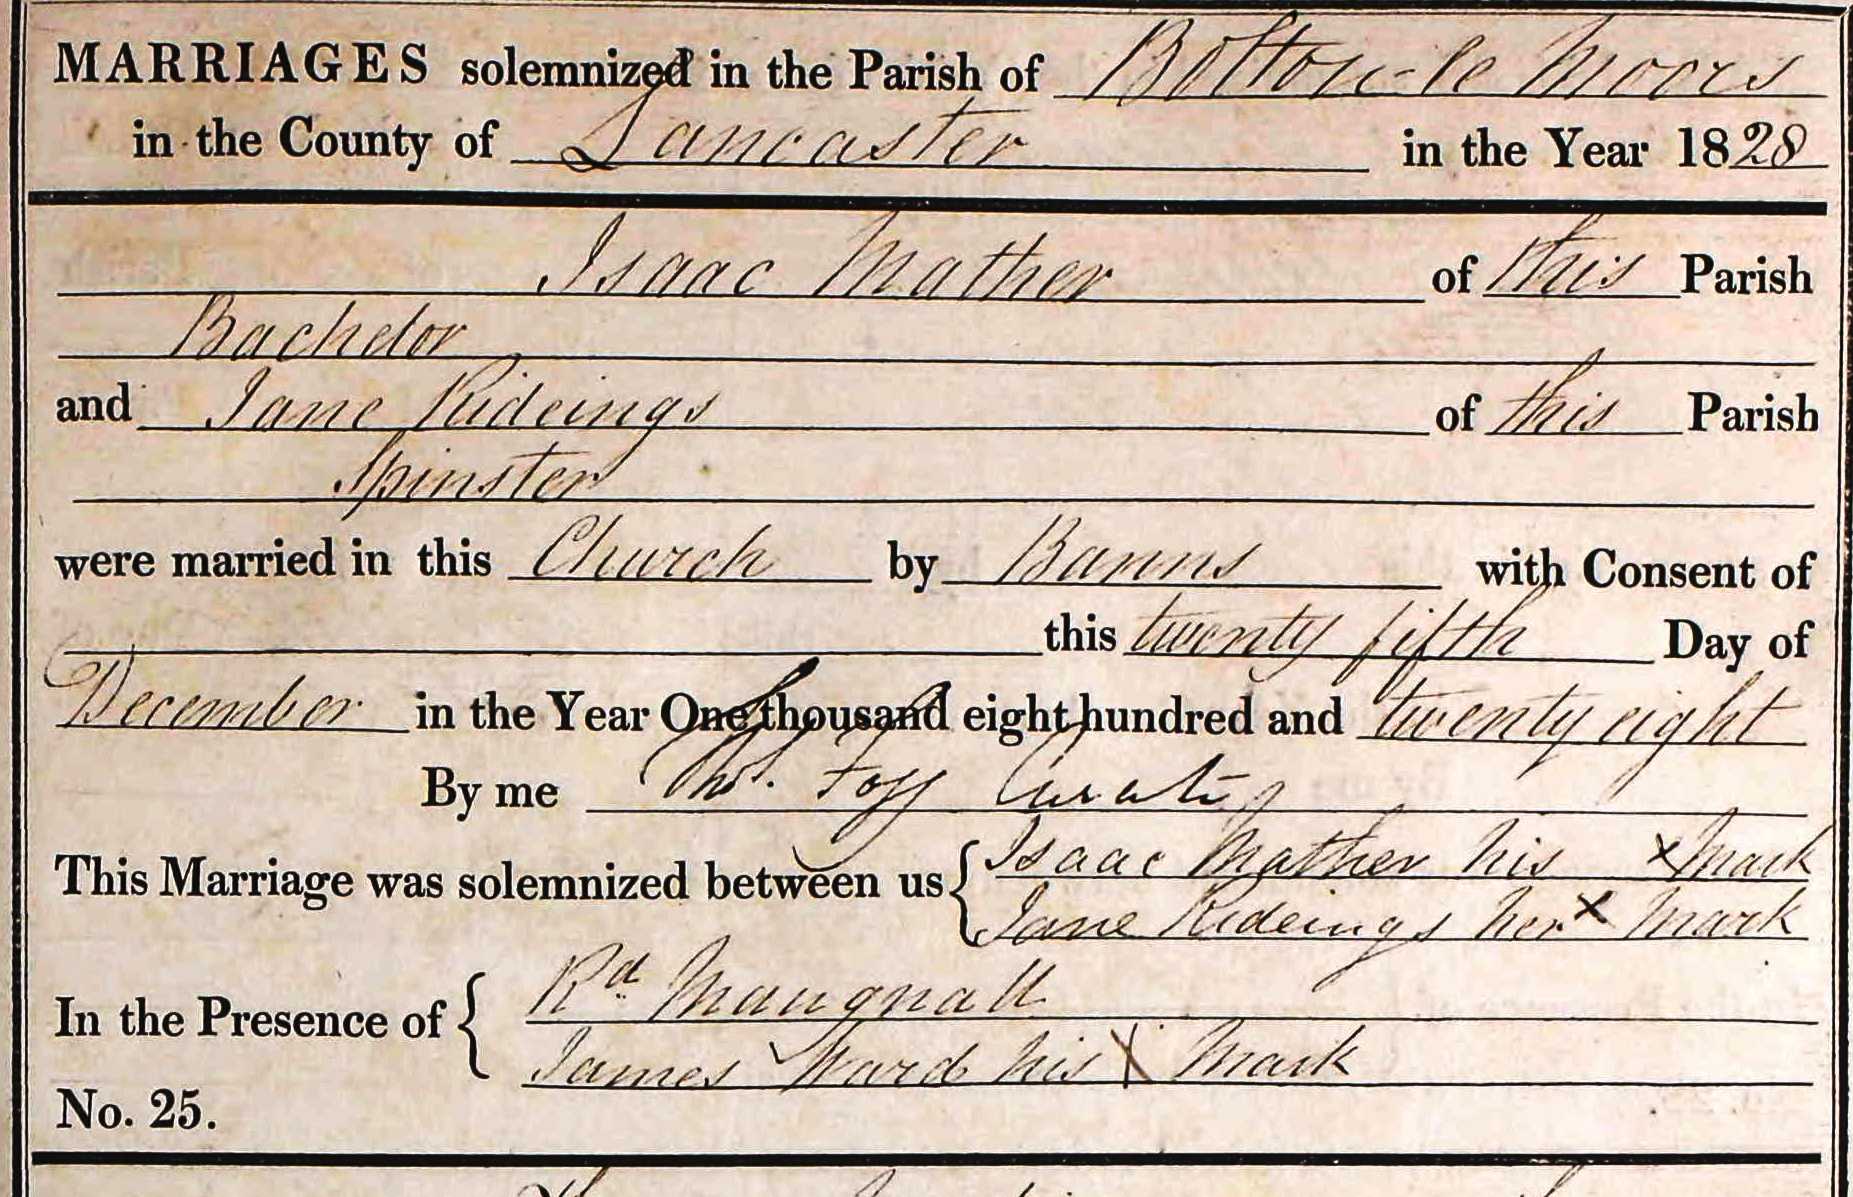 MARRIAGES solemnized in the Parish of Bolton-le Moors
in the County of Lancaster in the Year 1828
Isaac Mather of this Parish
Bachelor
and Jane Rideings of this Parish
Spinster
were married in this Church by Banns with Consent of
this twenty fifth Day of
December in the Year One thousand eight hundred and twenty eight
By me Thos. Foss Curate
This Marriage was solemnized between us { Isaac Mather his X Mark
Jane Rideings her X Mark
In the Presence of { Rd Maugnall
James Ward his X Mark
No. 25.